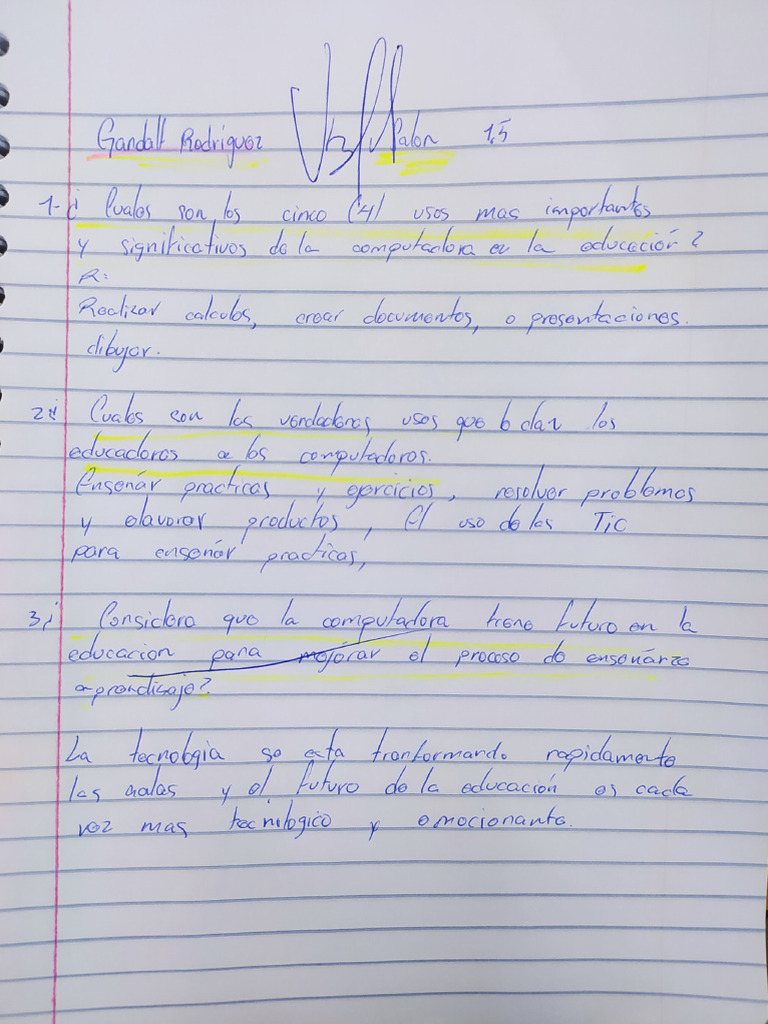 Gandalf Rodriguez Salon 1,5
1- ¿ Cuales son los cinco (4) usos mas importantes
y significativos de la computadora en la educación?
R:
Realizar calculos, crear documentos, o presentaciones.
dibujar.
2¿ Cuales son los verdaderos usos que le dan los
educadores a los computadoros.
Enseñar practicas y ejercicios, resolver problemas
y elavorar productos, El uso de las Tic
para enseñar practicas,
3¿ Considera que la computadora tiene futuro en la
educacion para mejorar el proceso de enseñanza
aprendisaje?
La tecnologia se esta tranformando rapidamente
las aulas y el futuro de la educación es cada
vez mas tecnilogico y emocionante.